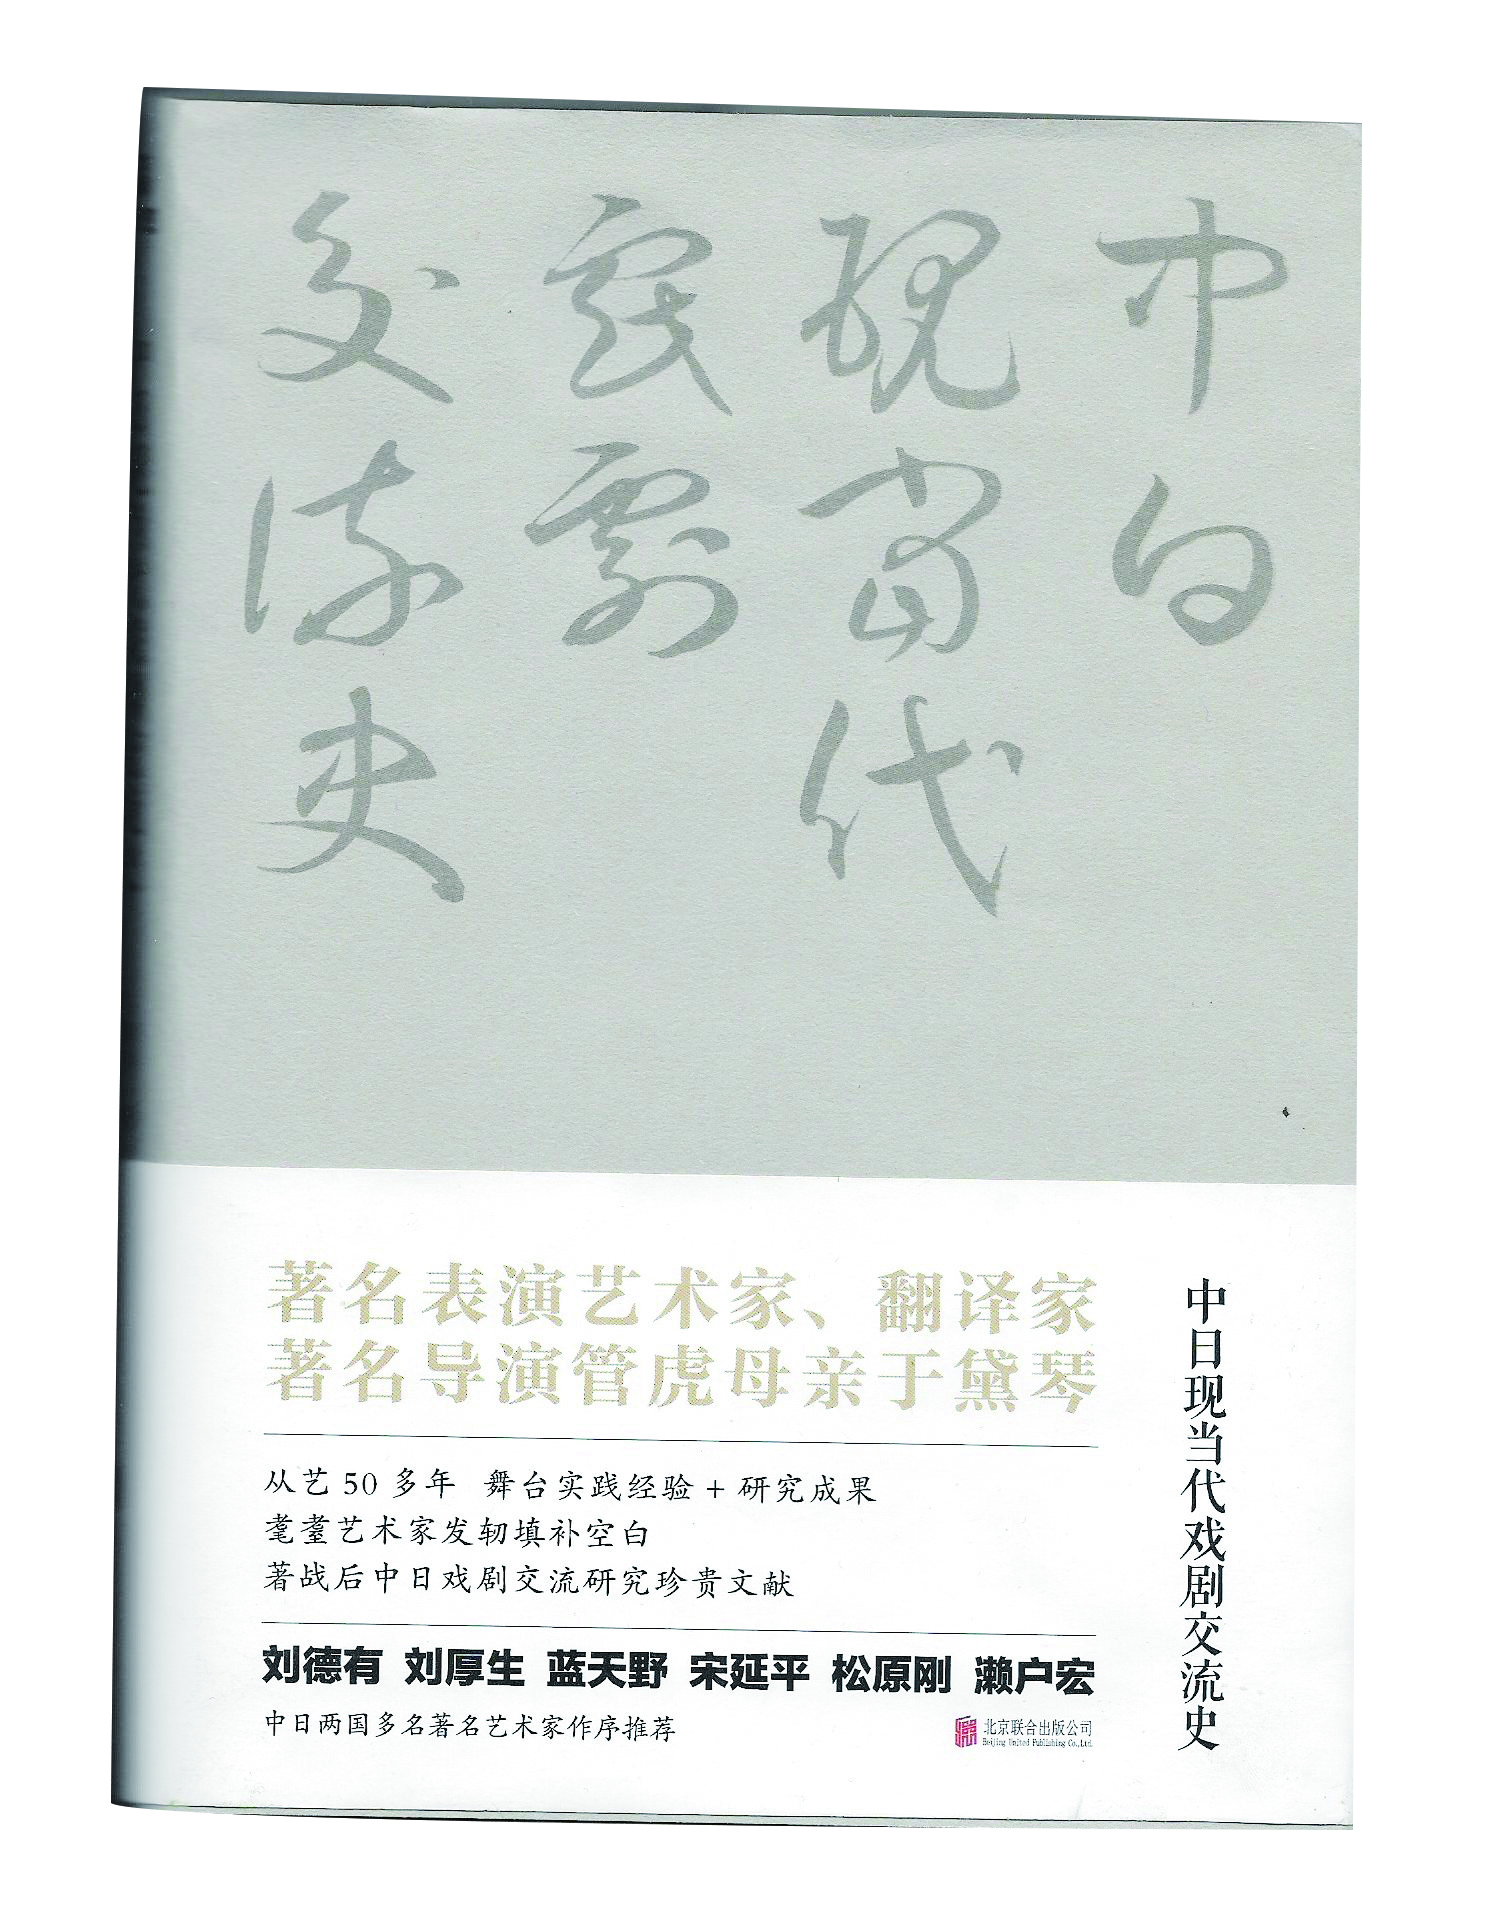 中日
現當代
戲劇
交流史
著名表演艺术家、翻译家
著名导演管虎母亲于黛琴
从艺50多年 舞台实践经验+研究成果
耄耋艺术家发轫填补空白
著战后中日戏剧交流研究珍贵文献
刘德有 刘厚生 蓝天野 宋延平 松原刚 濑户宏
中日两国多名著名艺术家作序推荐
北京联合出版公司
Beijing United Publishing Co.,Ltd.
中日现当代戏剧交流史